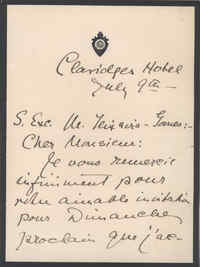 Claridges Hotel
July 9th —
S. Exc. M. Teixeira - Gomes:-
Cher Monsieur:
Je vous remercie
infiniment pour
votre aimable invitation
pour Dimanche
prochain que j'ac-